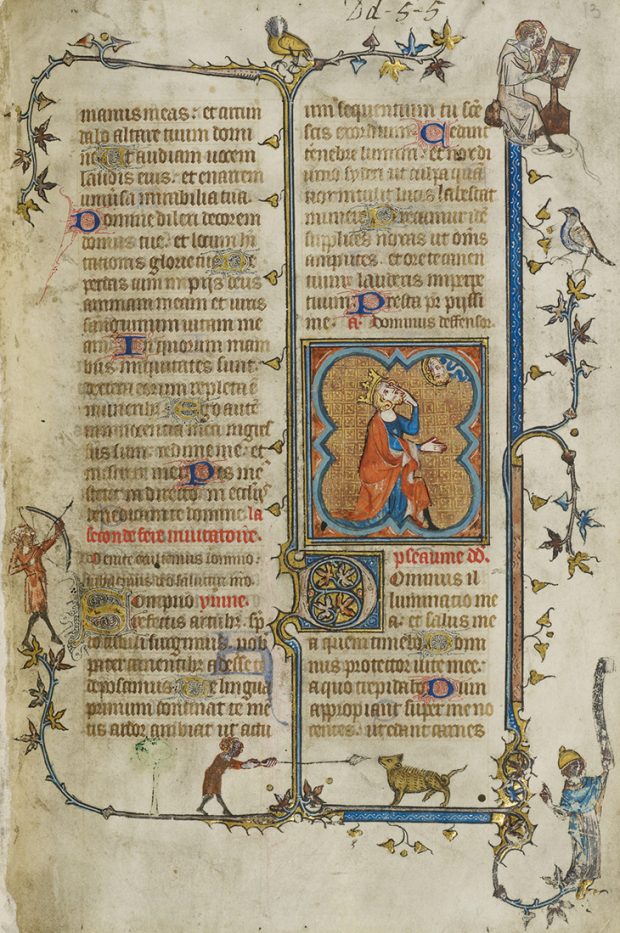 Dd-5-5
13
manus meas: et circum
dabo altare tuum domi
ne Ut audiam uocem
laudis eius: et enarrem
uniuersa mirabilia tua
Domine dilexi decorem
domus tue: et locum ha
bitationis glorie tue Ne
perdas cum impijs deus
animam meam et uiris
sanguinum uitam me
am In quorum mani
bus iniquitates sunt:
dextera eorum repleta ē
muneribz Ego autē
in innocentia mea ingres
sus sum: redime me et
miserere mei Pes me⁹
stetit in directo: in ecclijs
benedicam te domine la
seconde fere inuitatoire
Uenite exultemus domino
iubilemus deo salutari nro
Sompno ymne
refectis artubz. spre
to cubili surgimus: nob
pater canentibz adesse te
deposcimus Te lingua
primum concinat te me
tis ardor ambiat ut actu
um sequentium tu scē
sis exordium Cedant
tenebre lumini: et nox di
urno syderi ut culpa quā
nox intulit lucis labescat
munere Precamur idē
supplices noxas ut om̄s
amputes: et ore te canen
tium: lauderis in perpe
tuum Presta pr̄ pijssi
me a. Dominus deffensor
pseaume dd.
Dominus il
luminatio me
a: et salus me
a quem timebo Domi
nus protector uite mee:
a quo trepidabo Dum
appropiant super me no
centes: ut edant carnes